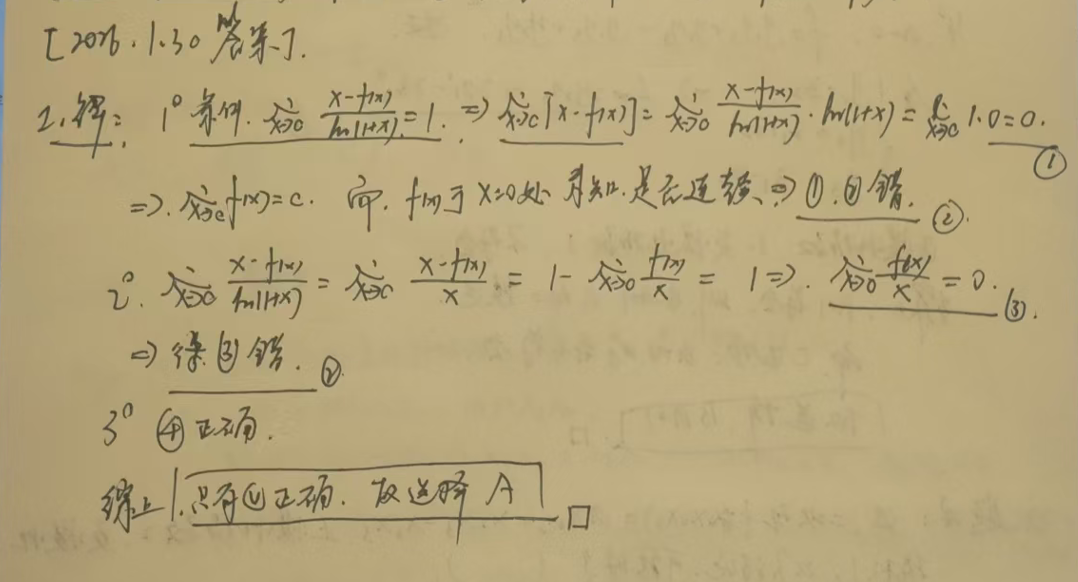 [2026.1.30 答案].
1.解: 1° 条件. lim x→0 (x-f(x))/ln(1+x) = 1. ⇒ lim x→0 [x-f(x)] = lim x→0 (x-f(x))/ln(1+x) · ln(1+x) = lim x→0 1·0=0. ①
⇒. lim x→0 f(x)=0. 而. f(x)于 x=0处 未知.是否连续.⇒ ①.②错. ②.
2°. lim x→0 (x-f(x))/ln(1+x) = lim x→0 (x-f(x))/x = 1- lim x→0 f(x)/x = 1⇒. lim x→0 f(x)/x = 0. ③.
⇒ ③错. ②
3° ④正确.
综上.只有④正确. 故选择 A □